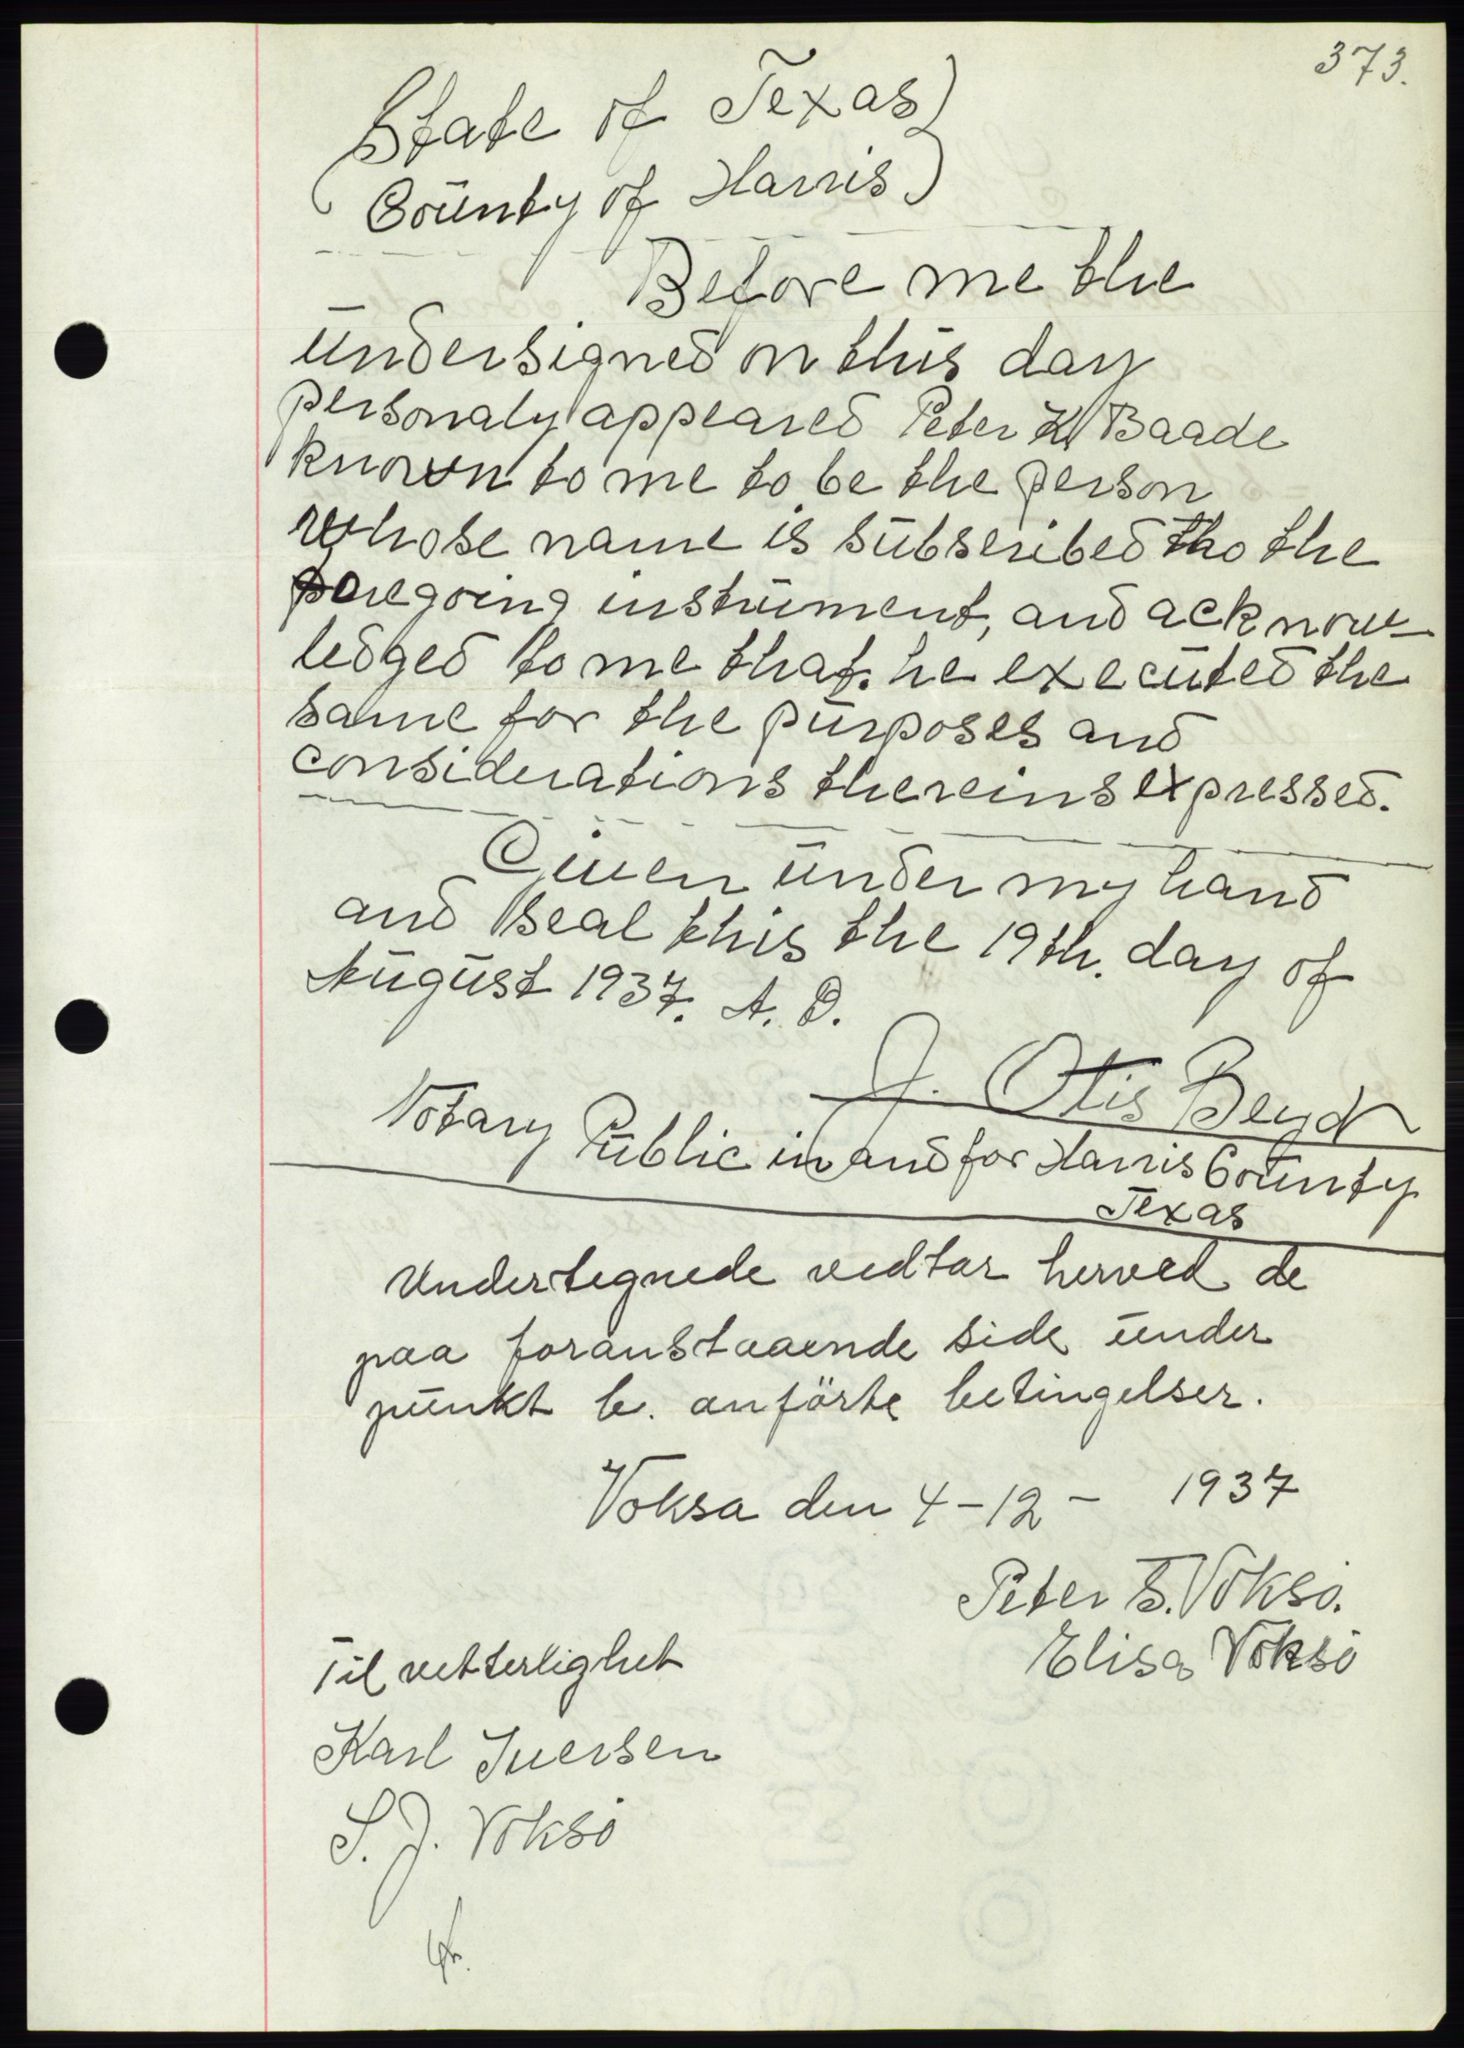 373.
State of Texas
County of Harris
Before me the
undersigned on this day
personaly appeared Peter K. Baade
known to me to be the person
whose name is subscribed tho the
foregoing instrument, and acknow-
ledged to me that he executed the
same for the purposes and
considerations thereins expressed.
Given under my hand
and seal this the 19th. day of
August 1937. A. D.
J. Otis Beyd
Notary Public in and for Harris County
Texas
Undertegnede vedtar herved de
paa foranstaaende side under
punkt b. anförte betingelser.
Voksa den 4-12- 1937
Peter S. Voksø.
Elisa Voksø
Til vetterlighet
Karl Iversen
S. J. Voksø